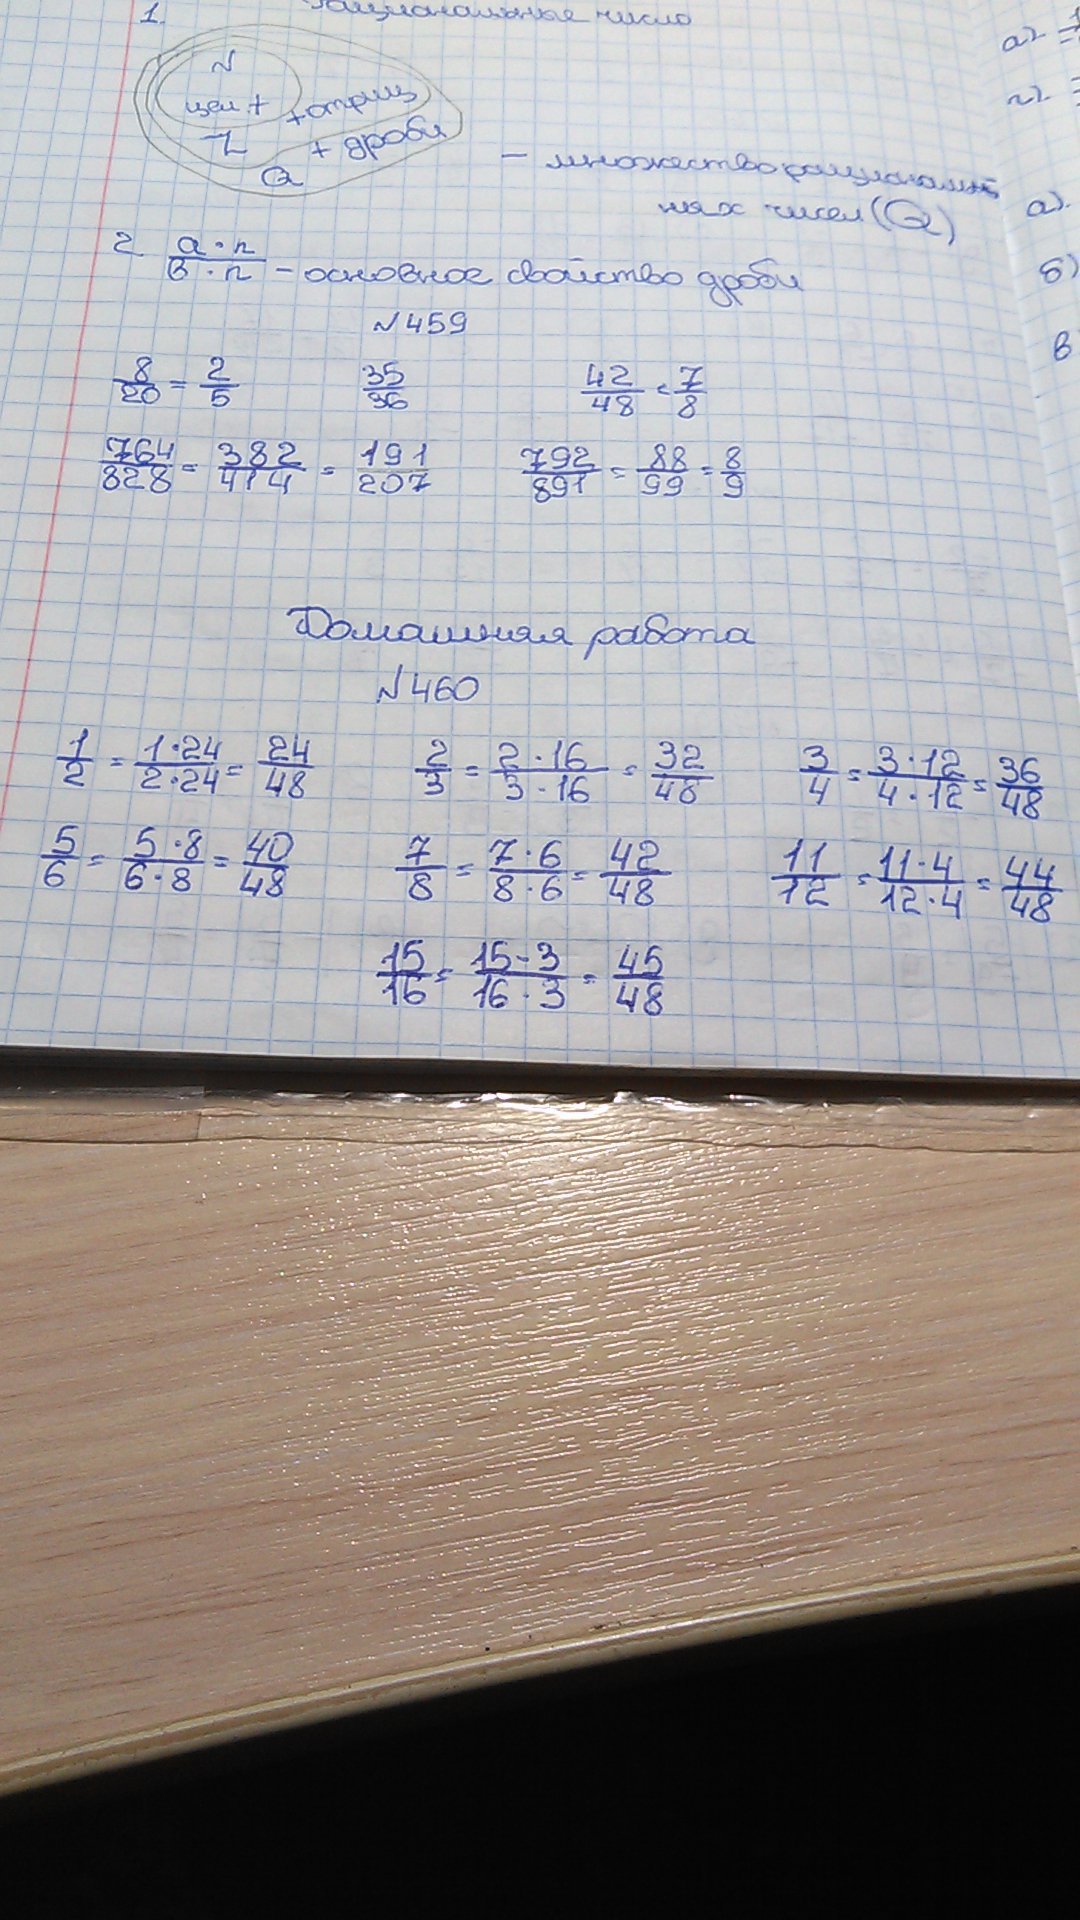 1. Рациональные число
N
цел + + отриц
Z + дроби
Q
– множество рациональ
ных чисел (Q)
2 a·n/b·n – основное свойство дроби
N459
8/20 = 2/5 35/36 42/48 = 7/8
764/828 = 382/414 = 191/207 792/891 = 88/99 = 8/9
Домашняя работа
N460
1/2 = 1·24/2·24 = 24/48 2/3 = 2·16/3·16 = 32/48 3/4 = 3·12/4·12 = 36/48
5/6 = 5·8/6·8 = 40/48 7/8 = 7·6/8·6 = 42/48 11/12 = 11·4/12·4 = 44/48
15/16 = 15·3/16·3 = 45/48
а)
г)
а).
б)
в